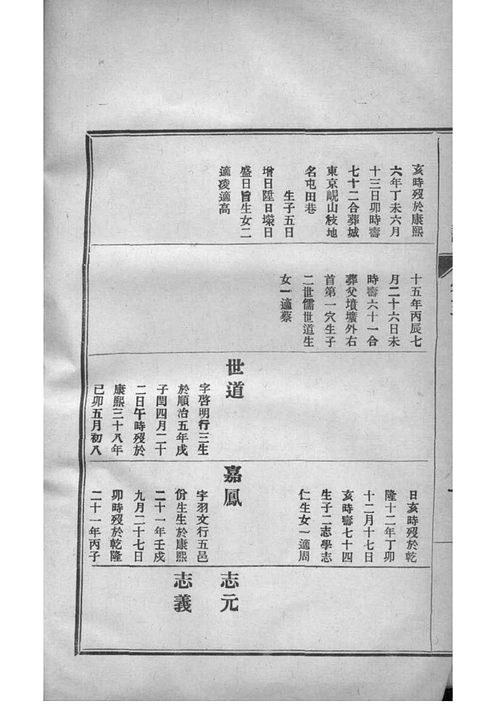 亥時歿於康熙
六年丁未六月
十三日卯時壽
七十二合葬城
東京峴山枝地
名屯田巷
生子五日
增日陞日瑮日
盛日旨生女二
適凌適高
十五年丙辰七
月二十六日未
時壽六十一合
葬父墳壙外右
首第一穴生子
二世儒世道生
女一適蔡
世道
字啓明行三生
於順治五年戊
子閏四月二十
二日午時歿於
康熙三十八年
己卯五月初八
日亥時歿於乾
隆十二年丁卯
十二月十七日
亥時壽七十四
生子二志學志
仁生女一適周
嘉鳳
字羽文行五邑
份生生於康熙
二十一年壬戌
九月二十七日
卯時歿於乾隆
二十一年丙子
志元
志義